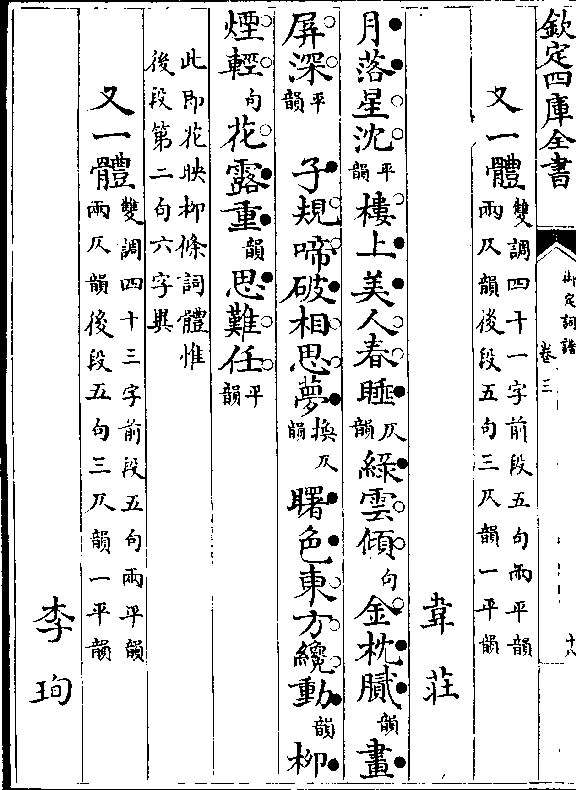 欽定四庫全書
御定詞譜
卷三
十八
又一體
雙調四十一字前段五句兩平韻
兩仄韻後段五句三仄韻一平韻
韋莊
月落星沈平韻樓上美人春睡仄韻綠雲傾句金枕膩韻畫
屏深平韻子規啼破相思夢換仄韻曙色東方纔動韻柳
煙輕句花露重韻思難任平韻
此即花映柳條詞體惟
後段第二句六字異
又一體
雙調四十三字前段五句兩平韻
兩仄韻後段五句三仄韻一平韻
李珣